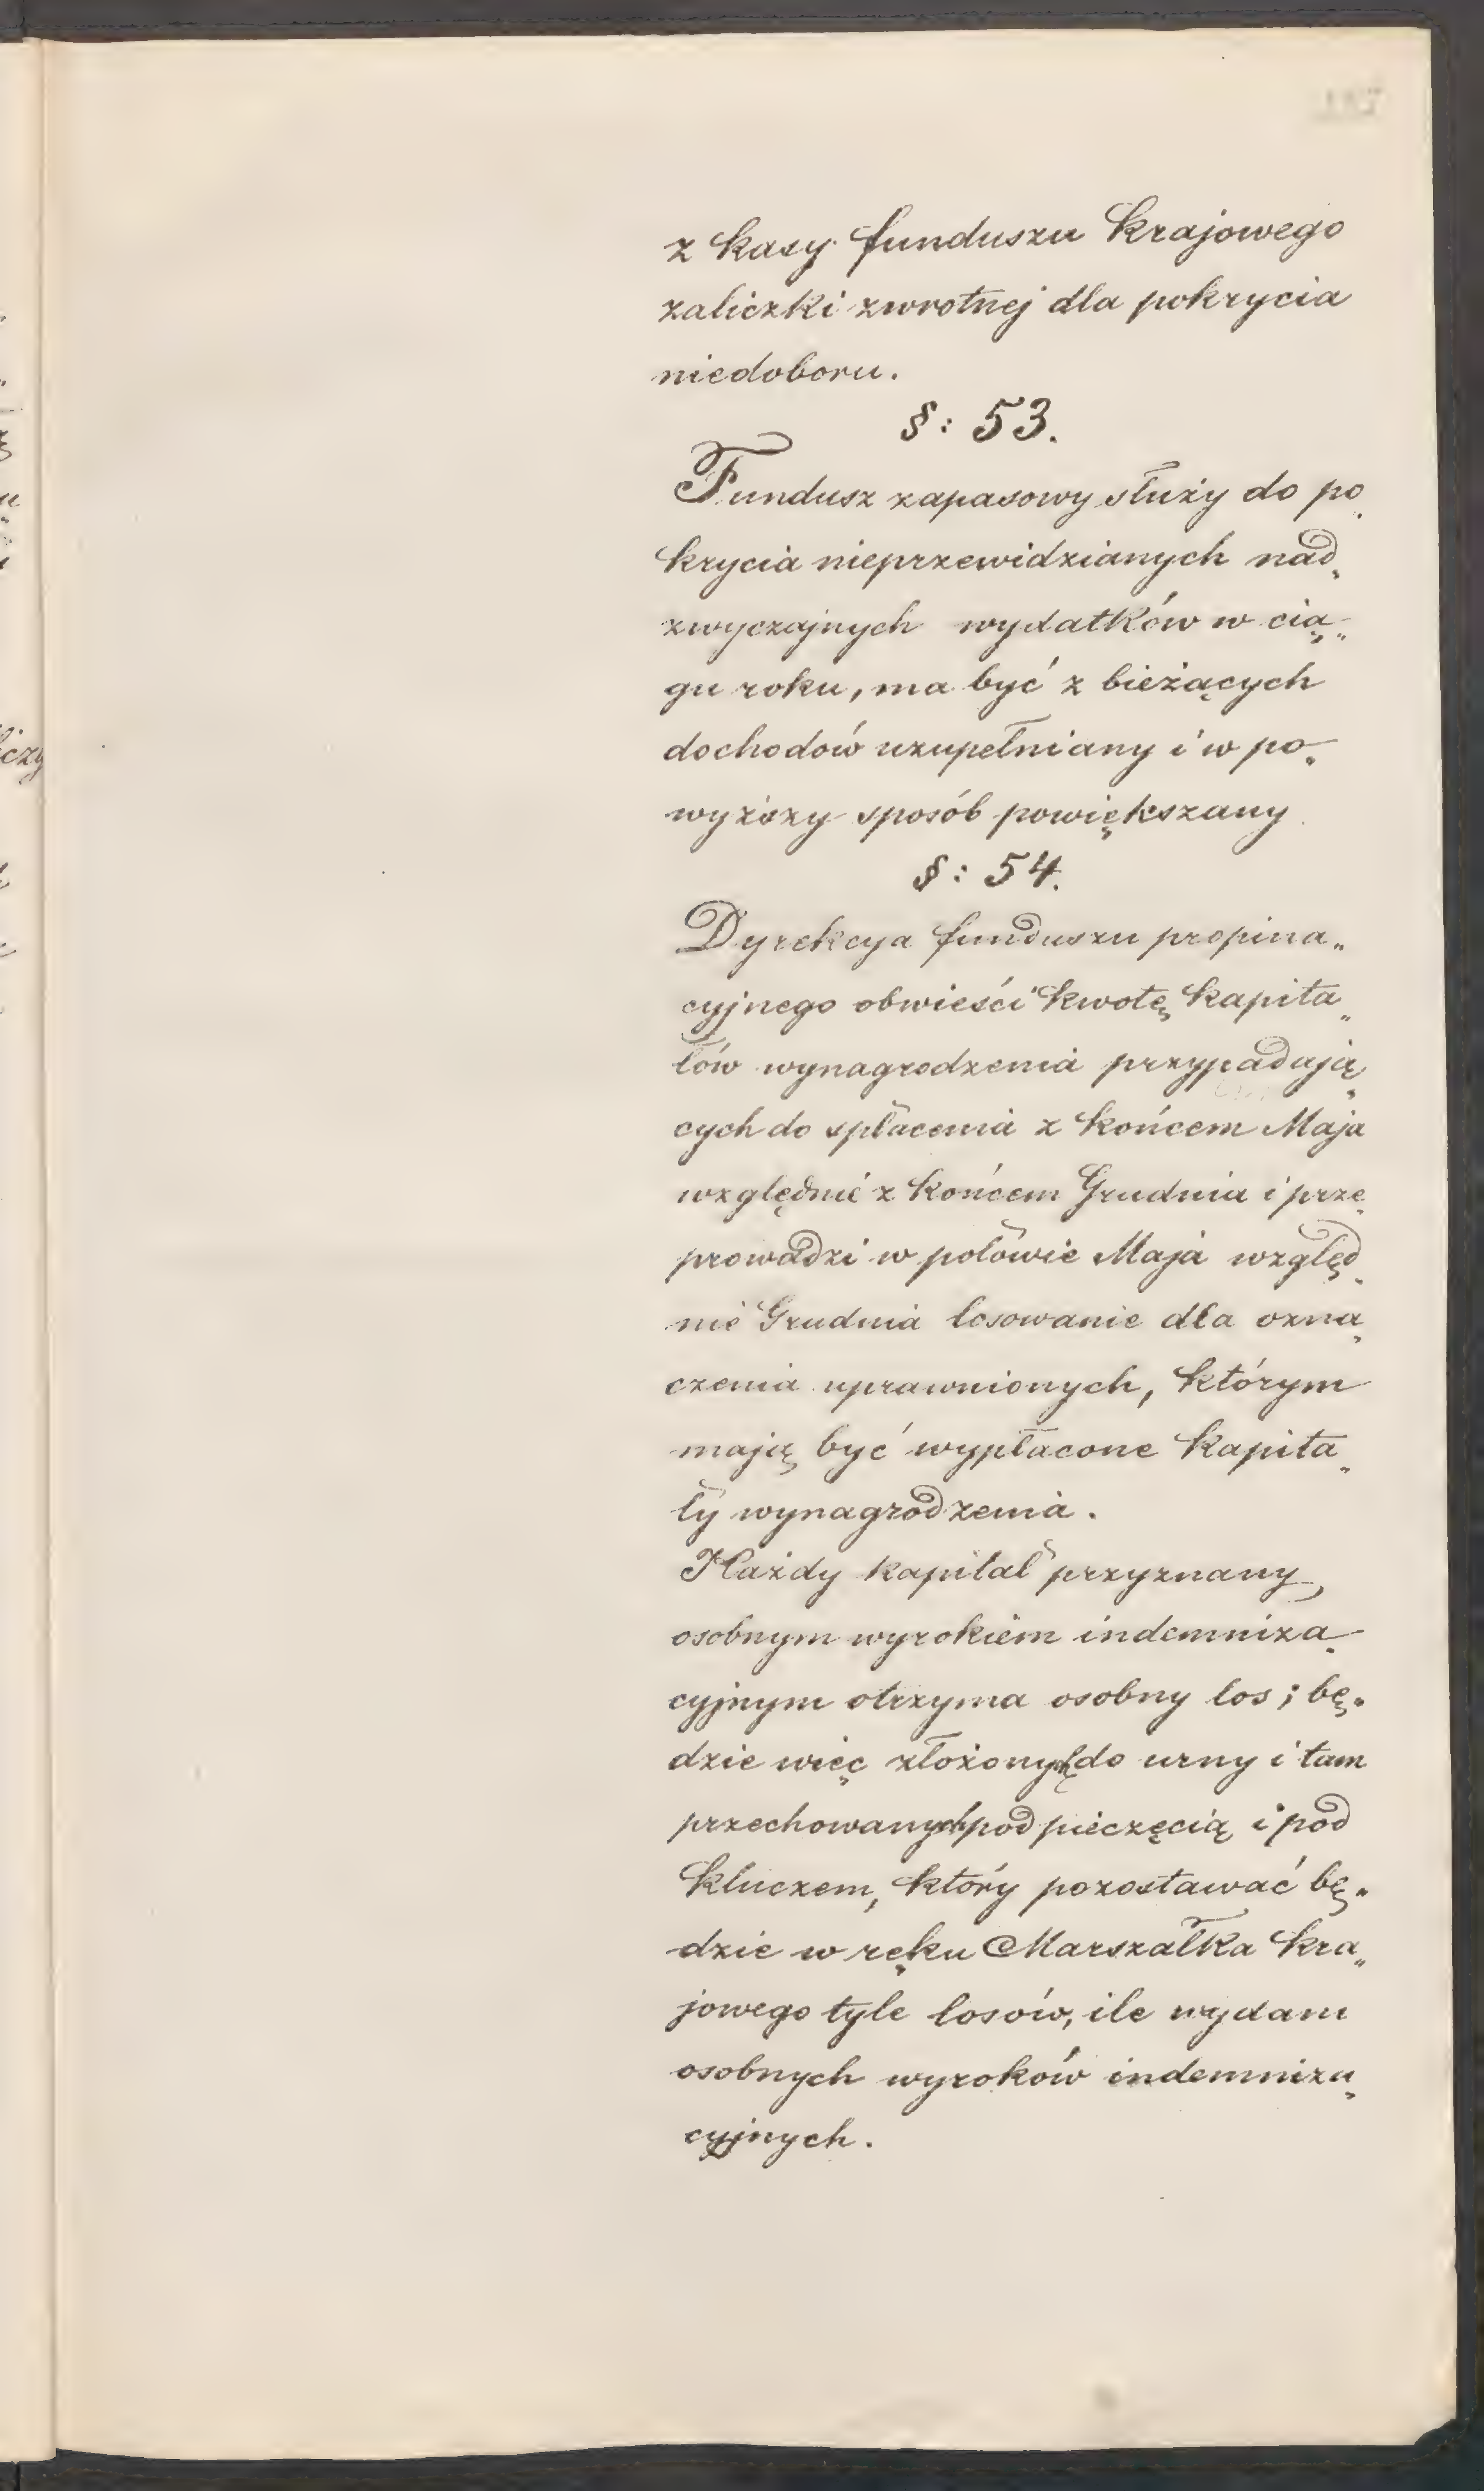 187
z kasy funduszu krajowego
zaliczki zwrotnej dla pokrycia
niedoboru.
§: 53.
Fundusz zapasowy służy do po„
krycia nieprzewidzianych nad„
zwyczajnych wydatków w cią„
gu roku, ma być z bieżących
dochodów uzupełniany i w po„
wyższy sposób powiększany
§: 54.
Dyrekcya funduszu propina„
cyjnego obwieści kwotę kapita„
łów wynagrodzenia przypadają„
cych do spłacenia z końcem Maja
względnie z końcem Grudnia i prze„
prowadzi w połowie Maja względ„
nie Grudnia losowanie dla ozna„
czenia uprawnionych, którym
mają być wypłacone kapita„
ły wynagrodzenia.
Każdy kapitał przyznany,
osobnym wyrokiem indemniza„
cyjnym otrzyma osobny los; bę„
dzie więc złożonych do urny i tam
przechowanych pod pieczęcią i pod
kluczem, który pozostawać bę„
dzie w ręku Marszałka kra„
jowego tyle losów, ile wydani
osobnych wyroków indemniza„
cyjnych.